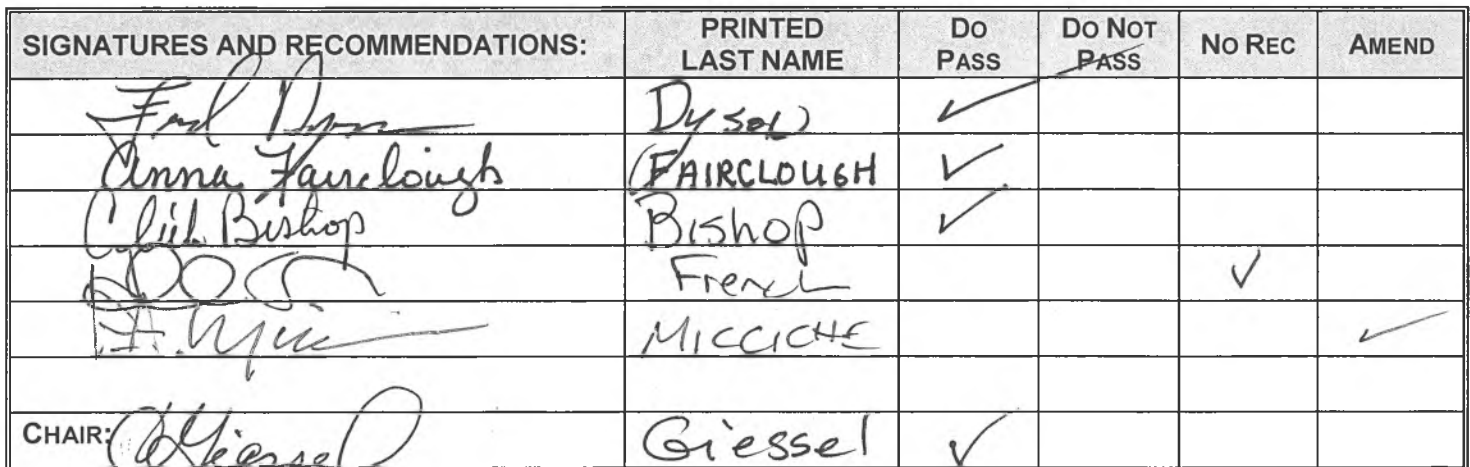 SIGNATURES AND RECOMMENDATIONS: PRINTED LAST NAME DO PASS DO NOT PASS NO REC AMEND
Fred Dyson Dyson ✓
Anna Fairclough FAIRCLOUGH ✓
Click Bishop Bishop ✓
French ✓
MICCICHE ✓
CHAIR: CGiessel Giessel ✓